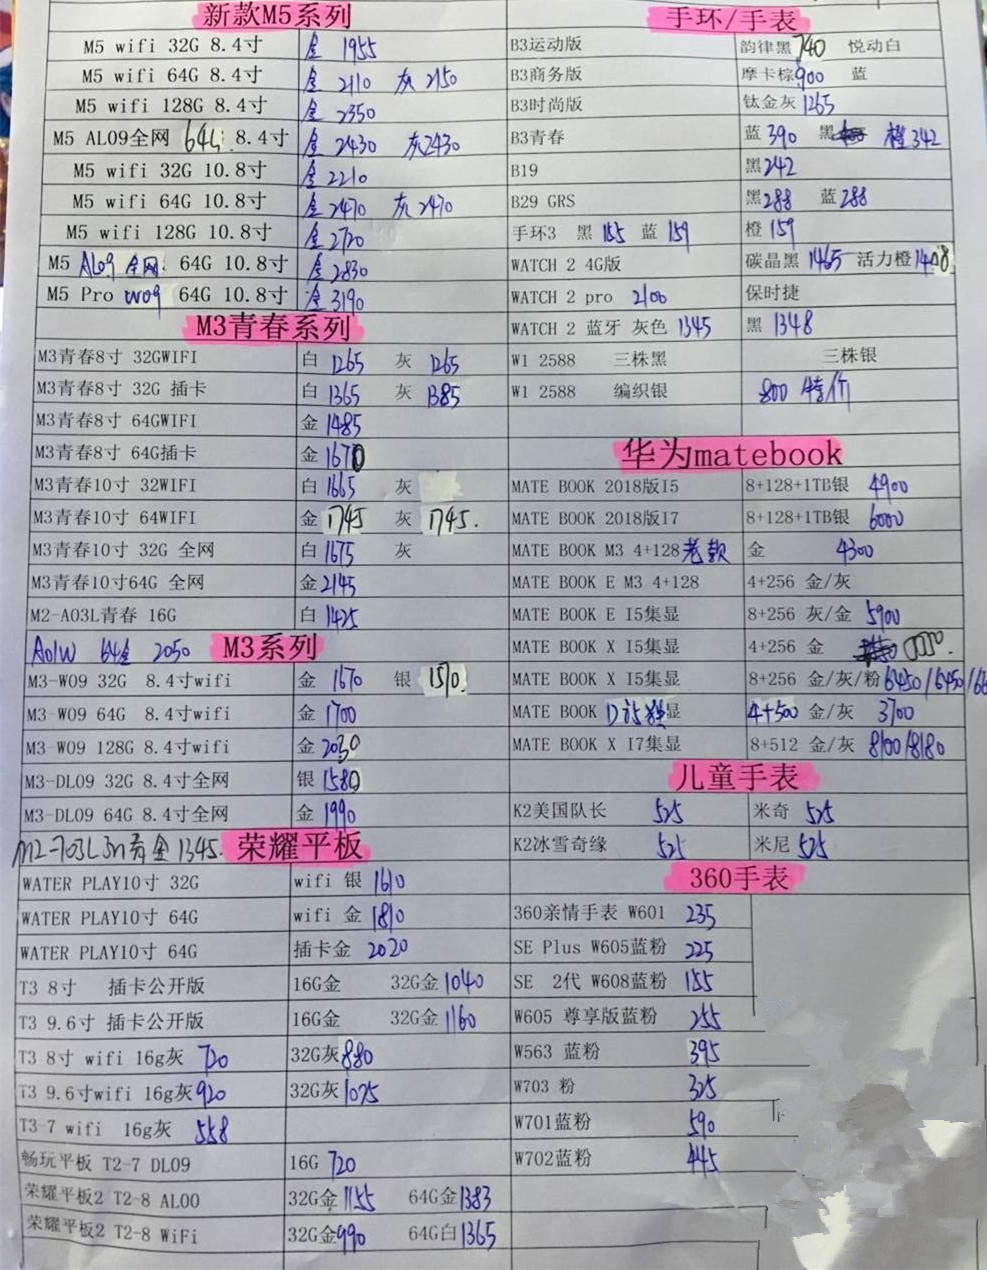 新款M5系列
M5 wifi 32G 8.4寸 金 1955
M5 wifi 64G 8.4寸 金 2110 灰 2150
M5 wifi 128G 8.4寸 金 2350
M5 AL09全网 64G 8.4寸 金 2430 灰2430
M5 wifi 32G 10.8寸 金 2210
M5 wifi 64G 10.8寸 金 2470 灰 2470
M5 wifi 128G 10.8寸 金 2720
M5 AL09 全网 64G 10.8寸 金 2830
M5 Pro W09 64G 10.8寸 金 3190
M3青春系列
M3青春8寸 32GWIFI 白 1265 灰 1265
M3青春8寸 32G 插卡 白 1365 灰 1385
M3青春8寸 64GWIFI 金 1485
M3青春8寸 64G插卡 金 1670
M3青春10寸 32WIFI 白 1665 灰
M3青春10寸 64WIFI 金 1745 灰 1745.
M3青春10寸 32G 全网 白 1675 灰
M3青春10寸64G 全网 金 2145
M2-A03L青春 16G 白 1425
A01W 64金 2050 M3系列
M3-W09 32G 8.4寸wifi 金 1670 银 1510.
M3-W09 64G 8.4寸wifi 金 1700
M3-W09 128G 8.4寸wifi 金 2030
M3-DL09 32G 8.4寸全网 银 1580
M3-DL09 64G 8.4寸全网 金 1990
M2-703L 金 1345. 荣耀平板
WATER PLAY10寸 32G wifi 银 1610
WATER PLAY10寸 64G wifi 金 1810
WATER PLAY10寸 64G 插卡金 2020
T3 8寸 插卡公开版 16G金 32G金 1040
T3 9.6寸 插卡公开版 16G金 32G金 1160
T3 8寸 wifi 16g灰 720 32G灰 880
T3 9.6寸wifi 16g灰 920 32G灰 1075
T3-7 wifi 16g灰 558
畅玩平板 T2-7 DL09 16G 720
荣耀平板2 T2-8 AL00 32G金 1155 64G金 1383
荣耀平板2 T2-8 WiFi 32G金 990 64G白 1365
手环/手表
B3运动版 韵律黑 740 悦动白
B3商务版 摩卡棕 900 蓝
B3时尚版 钛金灰 1265
B3青春 蓝 390 黑 橙 342
B19 黑 242
B29 GRS 黑 288 蓝 288
手环3 黑 155 蓝 159 橙 159
WATCH 2 4G版 碳晶黑 1465 活力橙 1408
WATCH 2 pro 2100 保时捷
WATCH 2 蓝牙 灰色 1345 黑 1348
W1 2588 三株黑 三株银
W1 2588 编织银 800 特价
华为matebook
MATE BOOK 2018版I5 8+128+1TB银 4900
MATE BOOK 2018版I7 8+128+1TB银 6000
MATE BOOK M3 4+128 老款 金 4300
MATE BOOK E M3 4+128 4+256 金/灰
MATE BOOK E I5集显 8+256 灰/金 5900
MATE BOOK X I5集显 4+256 金
MATE BOOK X I5集显 8+256 金/灰/粉 6450/6450/66
MATE BOOK D 显 4+500 金/灰 3700
MATE BOOK X I7集显 8+512 金/灰 8100/8180
儿童手表
K2美国队长 525 米奇 525
K2冰雪奇缘 525 米尼 525
360手表
360亲情手表 W601 235
SE Plus W605蓝粉 225
SE 2代 W608蓝粉 155
W605 尊享版蓝粉 255
W563 蓝粉 395
W703 粉 325
W701蓝粉 590
W702蓝粉 445